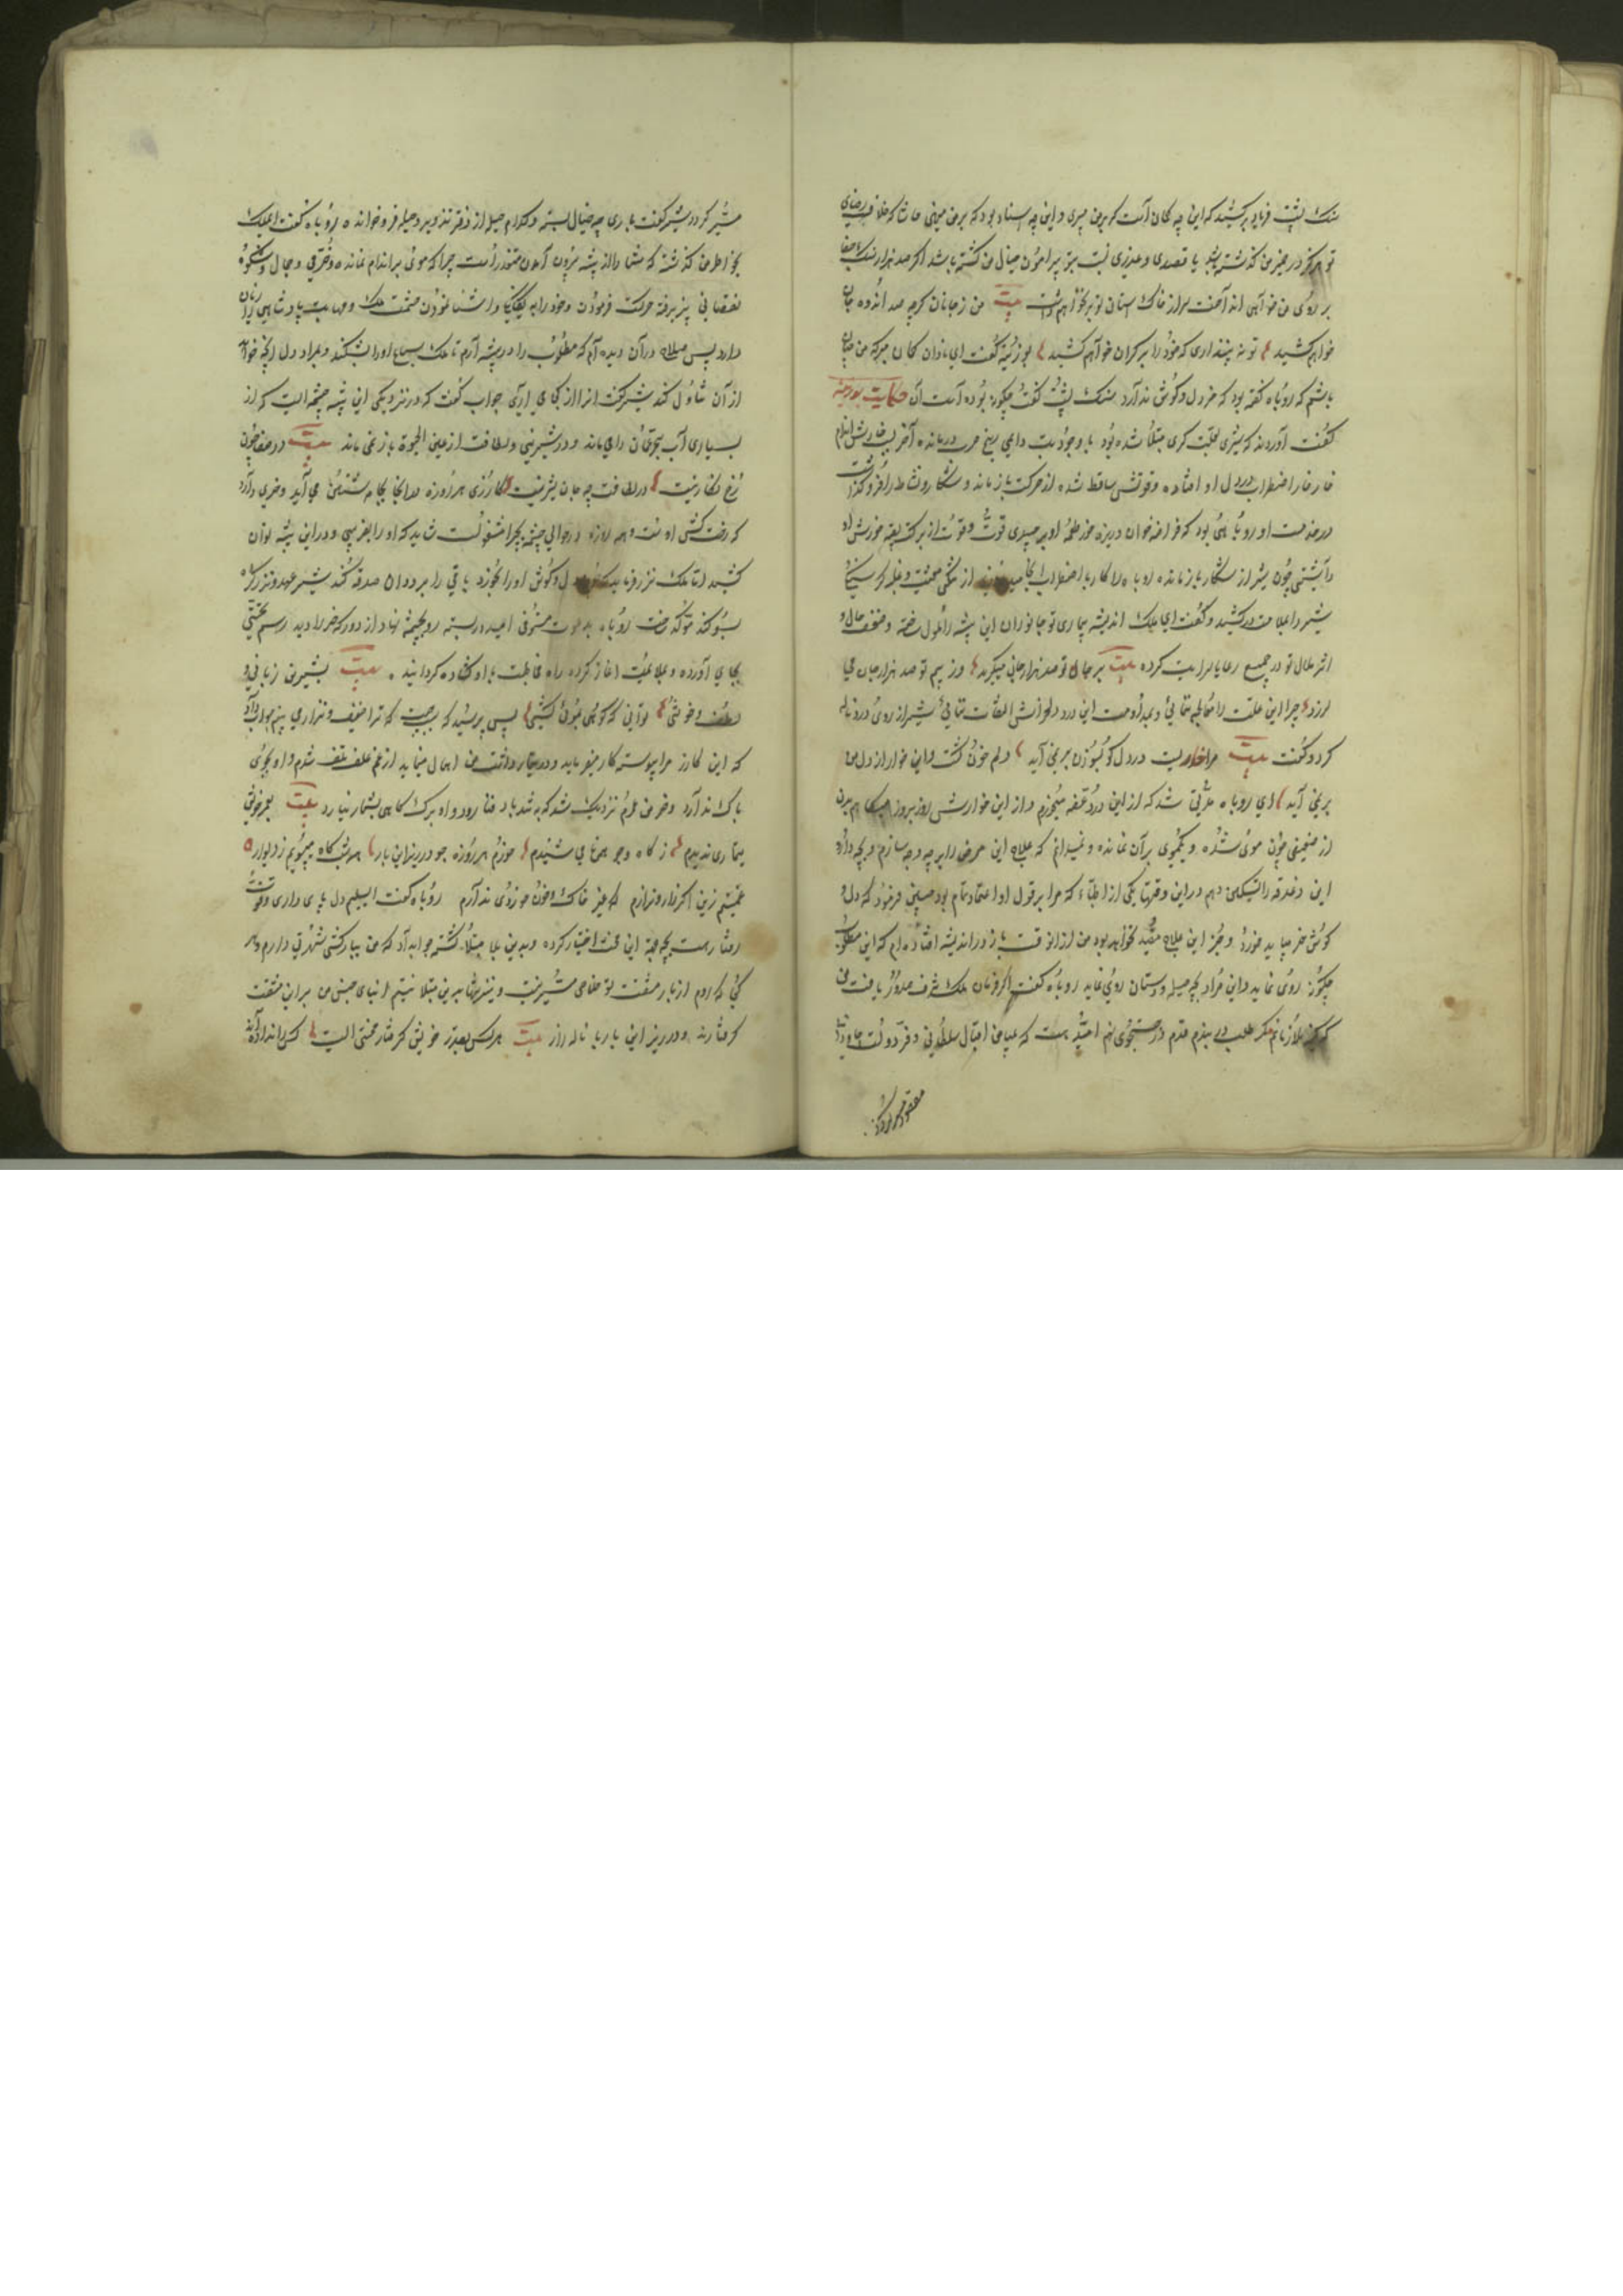 سنگ پشت فریاد برکشید که این چه گمان است که بمن میبری و این چه اسناد بود که بمن میدهی حاشا که خلاف رضای
تو هرگز در ضمیر من گذشته باشد یا قصدی و غدری نسبت بتو پیرامون خیال من گشته باشد اگر صد هزار سنگ جفا
بر روی من خواهی انداخت سر از خاک آستان تو بر نخواهم داشت بیت من ز جانان گرچه صد اندوه جان
خواهم کشید تو نه پنداری که خود را بر کران خواهم کشید بوزینه گفت ای نادان گمان مبر که من چنان
باشم که روباه گفته بود که خر دل و گوش ندارد سنگ پشت گفت چگونه بوده است آن حکایت بوزینه
گفت آورده‌اند که شیری بعلت گری مبتلا شده بود با وجود تب دایمی برنج جرب درمانده آخر بخارش اندام
خارخار اضطراب در دل او افتاده و قوتش ساقط شده از حرکت باز ماند و شکار و نشاط را فرو گذاشت
در خدمت او روباهی بود که قراضه خوان و ریزه خور طعمه او بر می‌چیدی قوت و قوت از برکت بقیه خورش او
داشتی چون شیر از شکار باز مانده روباه را کار باضطراب انجامید روزی از تنگی معیشت و غلبه گرسنگی
شیر را ملامت در کشید و گفت ای ملک اندیشه بیماری تو جانوران این بیشه را ملول ساخته و ضعف حال و
اثر ملال تو در جمیع رعایا سرایت کرده بیت بر جان تو صد هزار جان میگرید وز بیم تو صد هزار جان می
لرزد چرا این علت را معالجه نمائی و بمداومت این درد دلخراش التفات نمائی شیر از روی درد ناله
کرد و گفت بیت مرا خاریست در دل کو بسوزن بر نمی آید دلم خون گشت و این خوار از دل من
بر نمی آید ای روباه مدتی شد که از این درد غصه میخورم و از این خوارش روز بروز میکاهم بدن
از ضعیفی چون موی شده و یکموی بر آن نمانده و نمیدانم که علاج این مرض را بر چه وجه سازم و بچه دارو
این دغدغه را تسکین دهم در این وقتها یکی از اطباء که مرا بر قول او اعتماد تمام بود چنین فرمود که دل و
گوش خر میباید خورد و جز این علاج مفید نخواهد بود من از آن وقت باز در اندیشه افتاده‌ام که این مطلوب
چگونه روی نماید و این مراد بچه حیله و دستان روی نماید روباه گفت اگر فرمان ملک شرف صدور یافت من
کمینه ملازمانم کمر طلب در بندم قدم در جستجوی نهم امید هست که بمیامن اقبال سلطانی و فر دولت جاودانی
مقصود
شیر کرد شیر گفت باری چه خیال بسته و کدام حیل از دفتر تزویر و حیله فرو خوانده روباه گفت ای ملک
بخاطر من گذشته که شما را از بیشه بیرون آمدن متعذر است چرا که موئی بر اندام نمانده و خرمی و جمال و شکوه
نقصانی پذیرفته حرکت فرمودن و خود را به بیگانه و آشنا نمودن حشمت ملک و مهابت پادشاهی را زیان
دارد پس صلاح در آن دیده‌ام که مطلوب را در بیشه آرم تا ملک سباع او را بشکند و بمراد دل آنچه خواهد
از آن تناول کند شیر گفت او را از کجا می آری جواب گفت که در نزدیکی این بیشه چشمه ایست که از
بسیاری آب بحر عمان را می ماند و در شیرینی و لطافت از عین الحیوة باز نمی ماند بیت در صفا چون
رخ نگاریست در لطافت چه جان شیرینست گازری هر روزه آنجا بجامه شستن می آید و خری دارد
که رخت کش اوست و همه روزه در حوالی چشمه بچرا مشغول است شاید که او را بفریبی و در این بیشه توان
کشید اما ملک نذر فرماید که دل و گوش او را بخورد باقی را بر ددان صدقه کند شیر عهد و نذر را
بسوگند مؤکد ساخت روباه بدعوت مستوفی امید در بسته روی بچشمه نهاد از دور که خر را دید رسم تحیتی
بجای آورده و ملاعبت آغاز کرده راه مخاطبت با او گشاده گردانید بیت بشیرین زبانی و
لطف و خوشی توانی که کوهی بموئی کشی پس پرسید که چیست که ترا ضعیف و نزار می بینم جواب داد
که این گازر مرا پیوسته کار میفرماید و در تیمار داشت من اهمال مینماید از غم علف تلف شدم و او بجوی
باک ندارد و خرمن عمرم نزدیک شد که بباد فنا رود و او برگ کاهی بشمار نیارد بیت بعمر خویش
تیماری ندیدم ز کاه و جو همین نامی شنیدم خورم هر روزه جو در زیر این بار همه شب کاه میجویم ز دیوار
غمینم زین آخر زار و نزارم که جز خاک و خون خوردی ندارم روباه گفت ای سلیم دل پای داری و قوت
رفتار هست بچه جهة این محنت اختیار کرده و بدین بلا مبتلا گشته جواب داد که من ببارکشی شهرتی دارم و هر
کجا که روم از بار مشقت تو خلاصی میسر نیست و نیز تنها بدین مبتلا نیستم ابنای جنس من بر این مشقت
گرفتارند و در زیر این بار با ناله زار بیت هرکس بقدر خویش گرفتار محنتی است کس را نداده‌اند